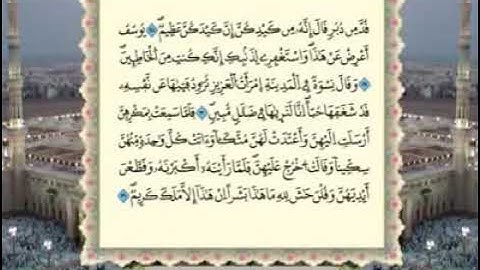 قُدَّ مِن دُبُرٍ قَالَ إِنَّهُۥ مِن كَيْدِكُنَّ إِنَّ كَيْدَكُنَّ عَظِيمٌ ۝ يُوسُفُ
أَعْرِضْ عَنْ هَٰذَا وَاسْتَغْفِرِي لِذَنۢبِكِ إِنَّكِ كُنتِ مِنَ الْخَاطِـِٔينَ
۝ وَقَالَ نِسْوَةٌ فِي الْمَدِينَةِ امْرَأَتُ الْعَزِيزِ تُرَاوِدُ فَتَىٰهَا عَن نَّفْسِهِۦ
قَدْ شَغَفَهَا حُبًّا إِنَّا لَنَرَىٰهَا فِي ضَلَٰلٍ مُّبِينٍ ۝ فَلَمَّا سَمِعَتْ بِمَكْرِهِنَّ
أَرْسَلَتْ إِلَيْهِنَّ وَأَعْتَدَتْ لَهُنَّ مُتَّكَـًٔا وَءَاتَتْ كُلَّ وَٰحِدَةٍ مِّنْهُنَّ
سِكِّينًا وَقَالَتِ اخْرُجْ عَلَيْهِنَّ فَلَمَّا رَأَيْنَهُۥٓ أَكْبَرْنَهُۥ وَقَطَّعْنَ
أَيْدِيَهُنَّ وَقُلْنَ حَٰشَ لِلَّهِ مَا هَٰذَا بَشَرًا إِنْ هَٰذَآ إِلَّا مَلَكٌ كَرِيمٌ ۝